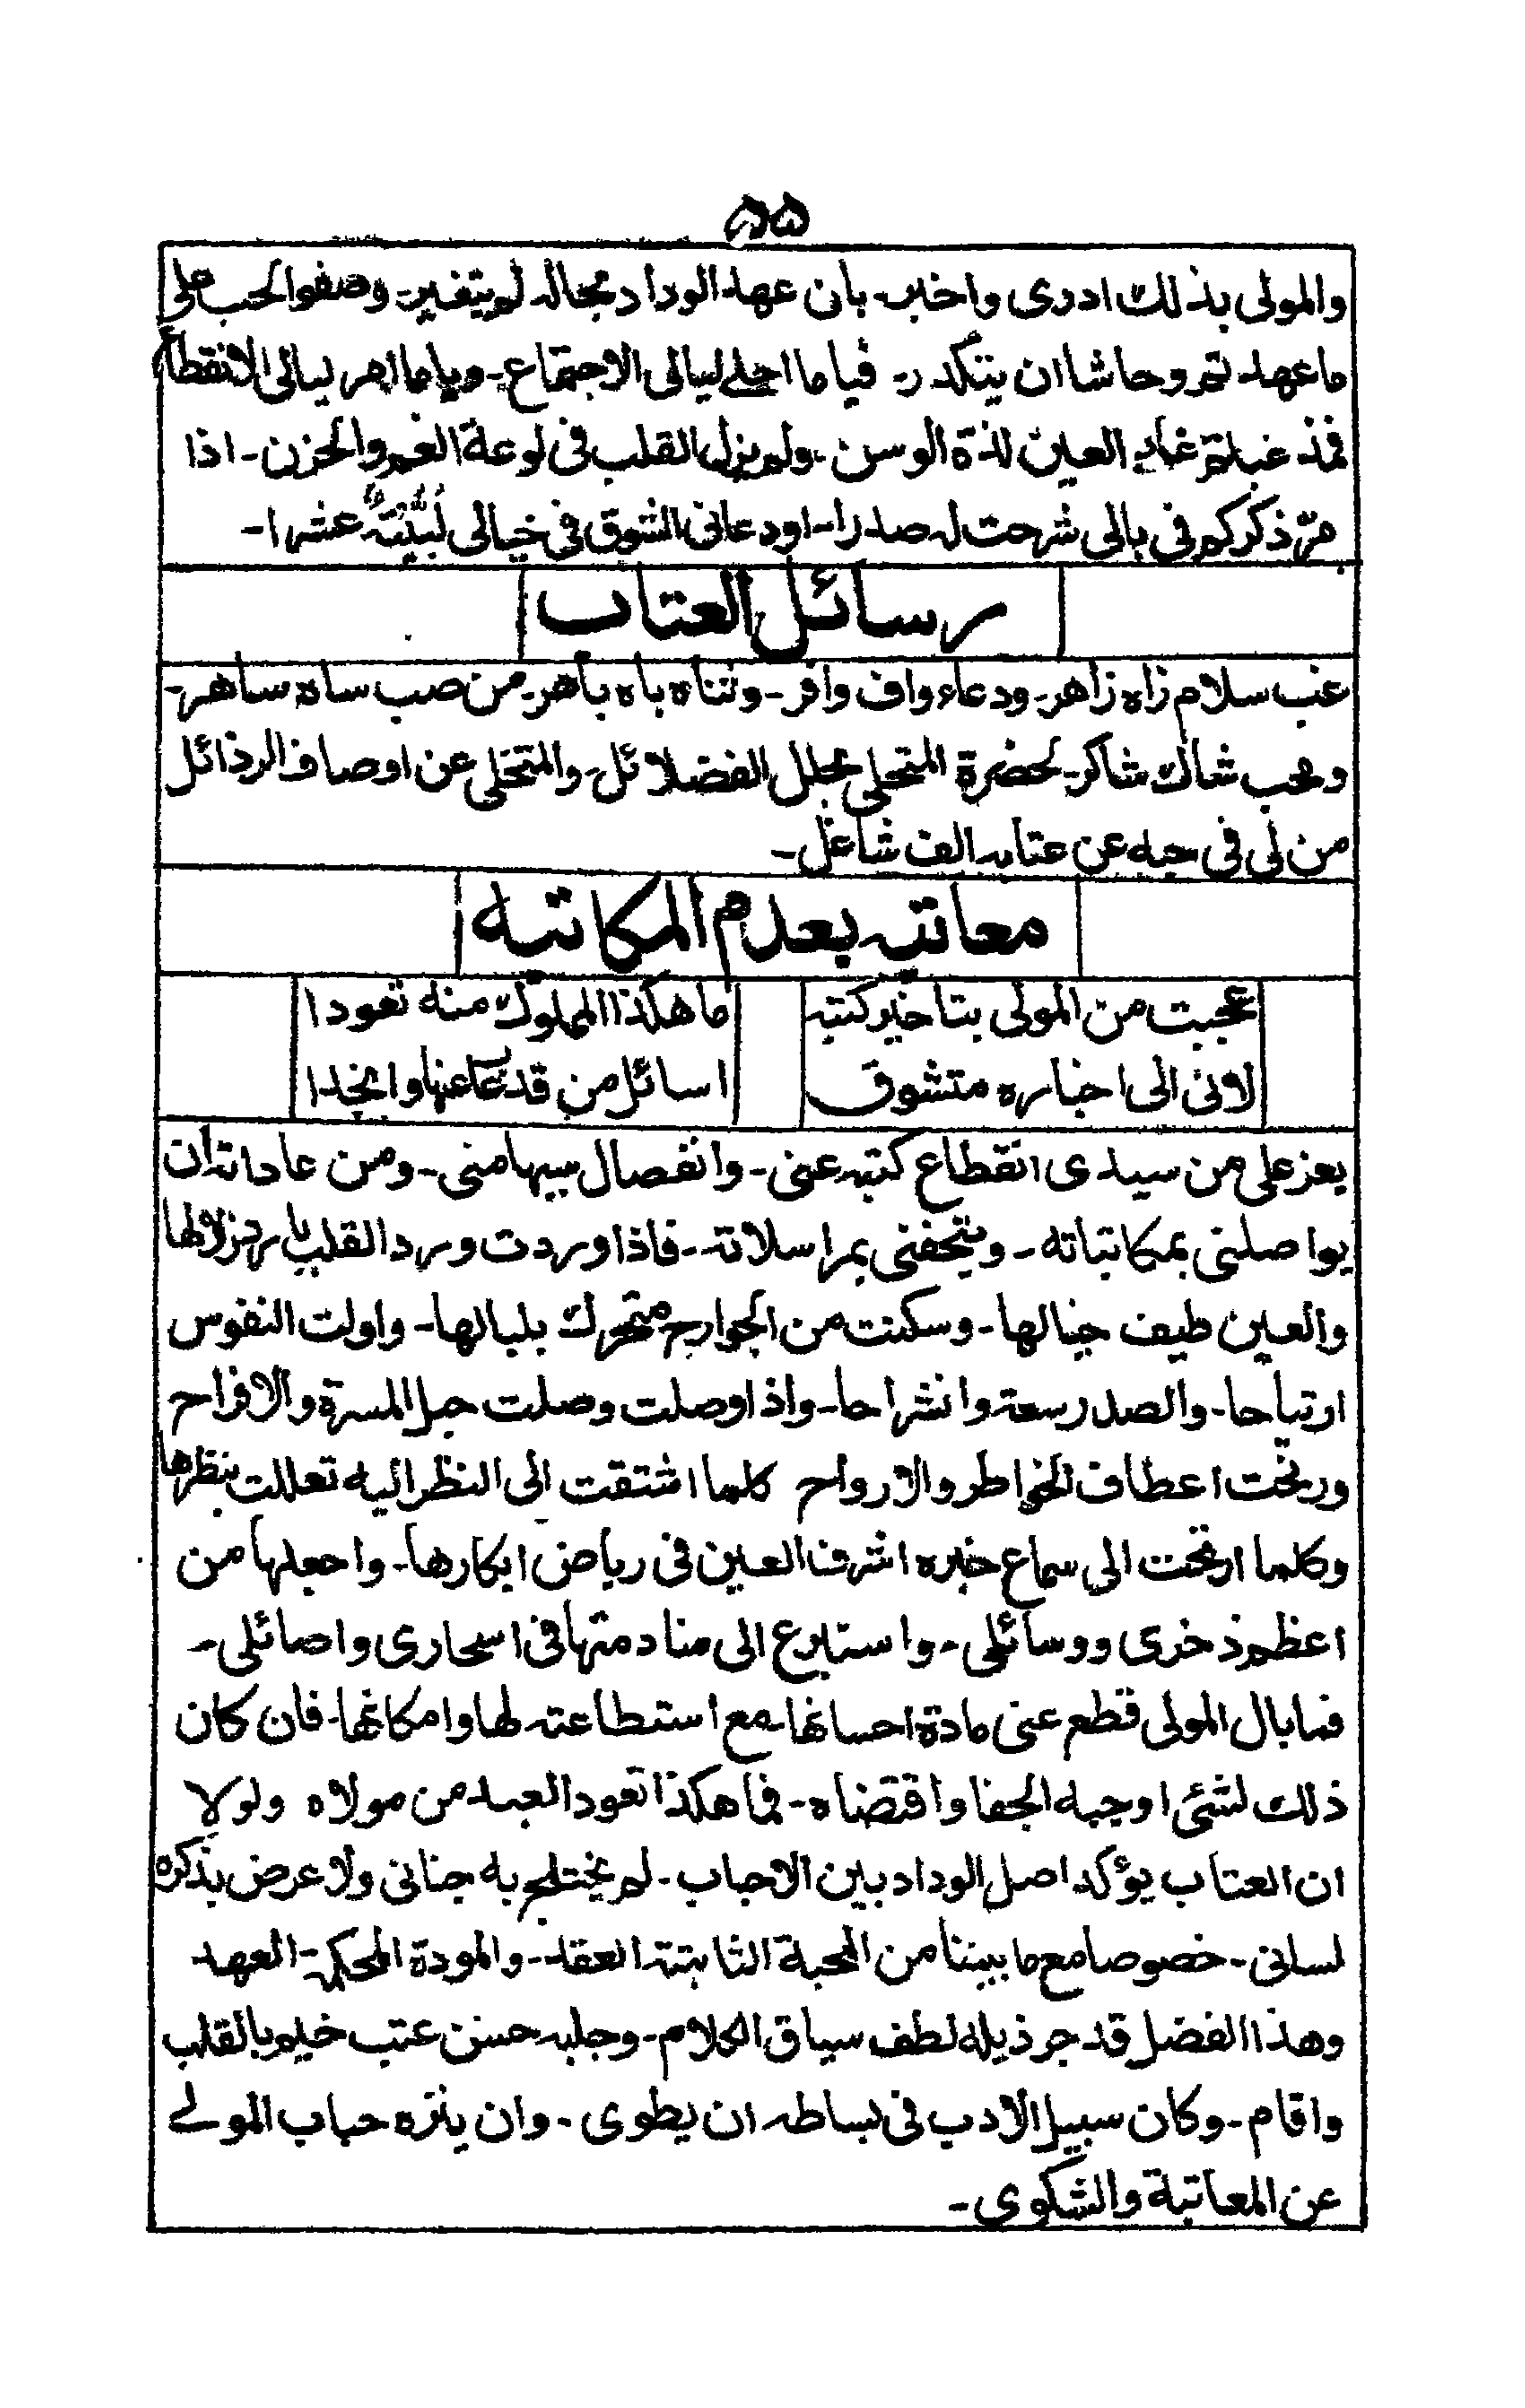 ۸۵
والمولى بذلك ادرى واخبر۔ بان عهد الوداد بحاله لم يتغير۔ وصفو الحب على
ما عهد تم وحاشا ان يتكدر۔ فيا ما احلى ليالى الاجتماع۔ ويا ما امر ليالى الانقطاع
فمذ غبتم غاب العين لذة الوسن۔ ولم يزل القلب فى لوعة الغم والحزن۔ اذا
مرّ ذكركم فى بالى شرحت له صدرا۔ او دعانى الشوق فى خيالى لبيته عشرا۔
رسائل العتاب
غب سلام زاه زاهر۔ ودعاء واف وافر۔ وثناه باه باهر۔ من صب ساه ساهر۔
ومحب شاك شاكر۔ لحضرة المتحلى بحلل الفضلائل۔ والمتخلى عن اوصاف الرذائل
من لى فى حبه عن عتابه الف شاغل۔
معاتبه بعدم المكاتبه
عجبت من المولى بتاخير كتبه
ما هكذا المملوك منه تعودا
لانى الى اخباره متشوق
اسائل من قد عنها وانجدا
يعز على من سيدى انقطاع كتبه عنى۔ وانفصال سيبها منى۔ ومن عاداته ان
يواصلنى بمكاتباته۔ ويتحفنى بمراسلاته۔ فاذا وردت ورد القلب بارد زلالها
والعين طيف خيالها۔ وسكنت من الجوارح متحرك بلبالها۔ واولت النفوس
ارتياحا۔ والصدر سعة وانشراحا۔ واذا وصلت وصلت حبل المسرة والافراح
ورنحت اعطاف الخواطر والارواح كلما اشتقت الى النظر اليه تعللت بنظرها
وكلما ارتحت الى سماع خبره اشرف العين فى رياض ابكارها۔ واجعلها من
اعظم ذخرى ووسائلى۔ واستبرع الى منادمتها فى اسحارى واصائلى۔
فما بال المولى قطع عنى مادة احسانها۔ مع استطاعته لها وامكانها۔ فان كان
ذلك لشئ اوجبه الجفا واقتضاه۔ فما هكذا تعود العبد من مولاه ولولا
ان العتاب يؤكد اصل الوداد بين الاحباب۔ لم يختلج به جنانى ولا عرض بذكره
لسانى۔ خصوصا مع ما بيننا من المحبة الثابتة العقد۔ والمودة المحكمة العهد
وهذا الفضل قد جر ذيله لطف سياق الكلام۔ وجلبه حسن عتب خيم بالقلب
واقام۔ وكان سبيل الادب فى بساطه ان يطوى۔ وان ينزه حباب المولے
عن المعاتبة والشكوى۔